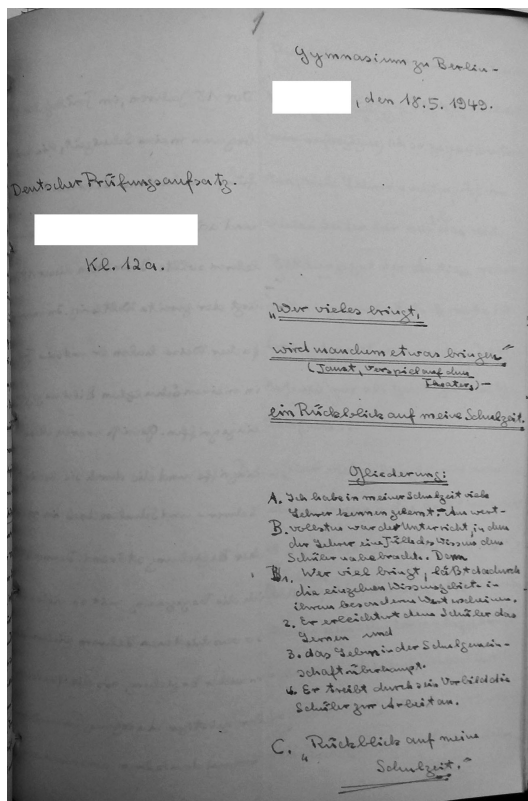 1
Gymnasium zu Berlin-
, den 18.5.1949.
Deutscher Prüfungsaufsatz.
Kl. 12a.
„Wer vieles bringt,
wird manchem etwas bringen"
(Faust, Vorspiel auf dem
Theater,)-
ein Rückblick auf meine Schulzeit.
Gliederung:
A. Ich habe in meiner Schulzeit viele
Lehrer kennen gelernt. Am wert-
B. vollsten war der Unterricht, in dem
der Lehrer eine Fülle des Wissens dem
Schüler nahebrachte. Denn
1. Wer viel bringt, läßt dadurch
die einzelnen Wissensgebiete in
ihrem besonderen Wert erscheinen.
2. Er erleichtert dem Schüler das
Lernen und
3. das Leben in der Schulgemein-
schaft überhaupt.
4. Er treibt durch sein Vorbild die
Schüler zur Arbeit an.
C. „Rückblick auf meine
Schulzeit."